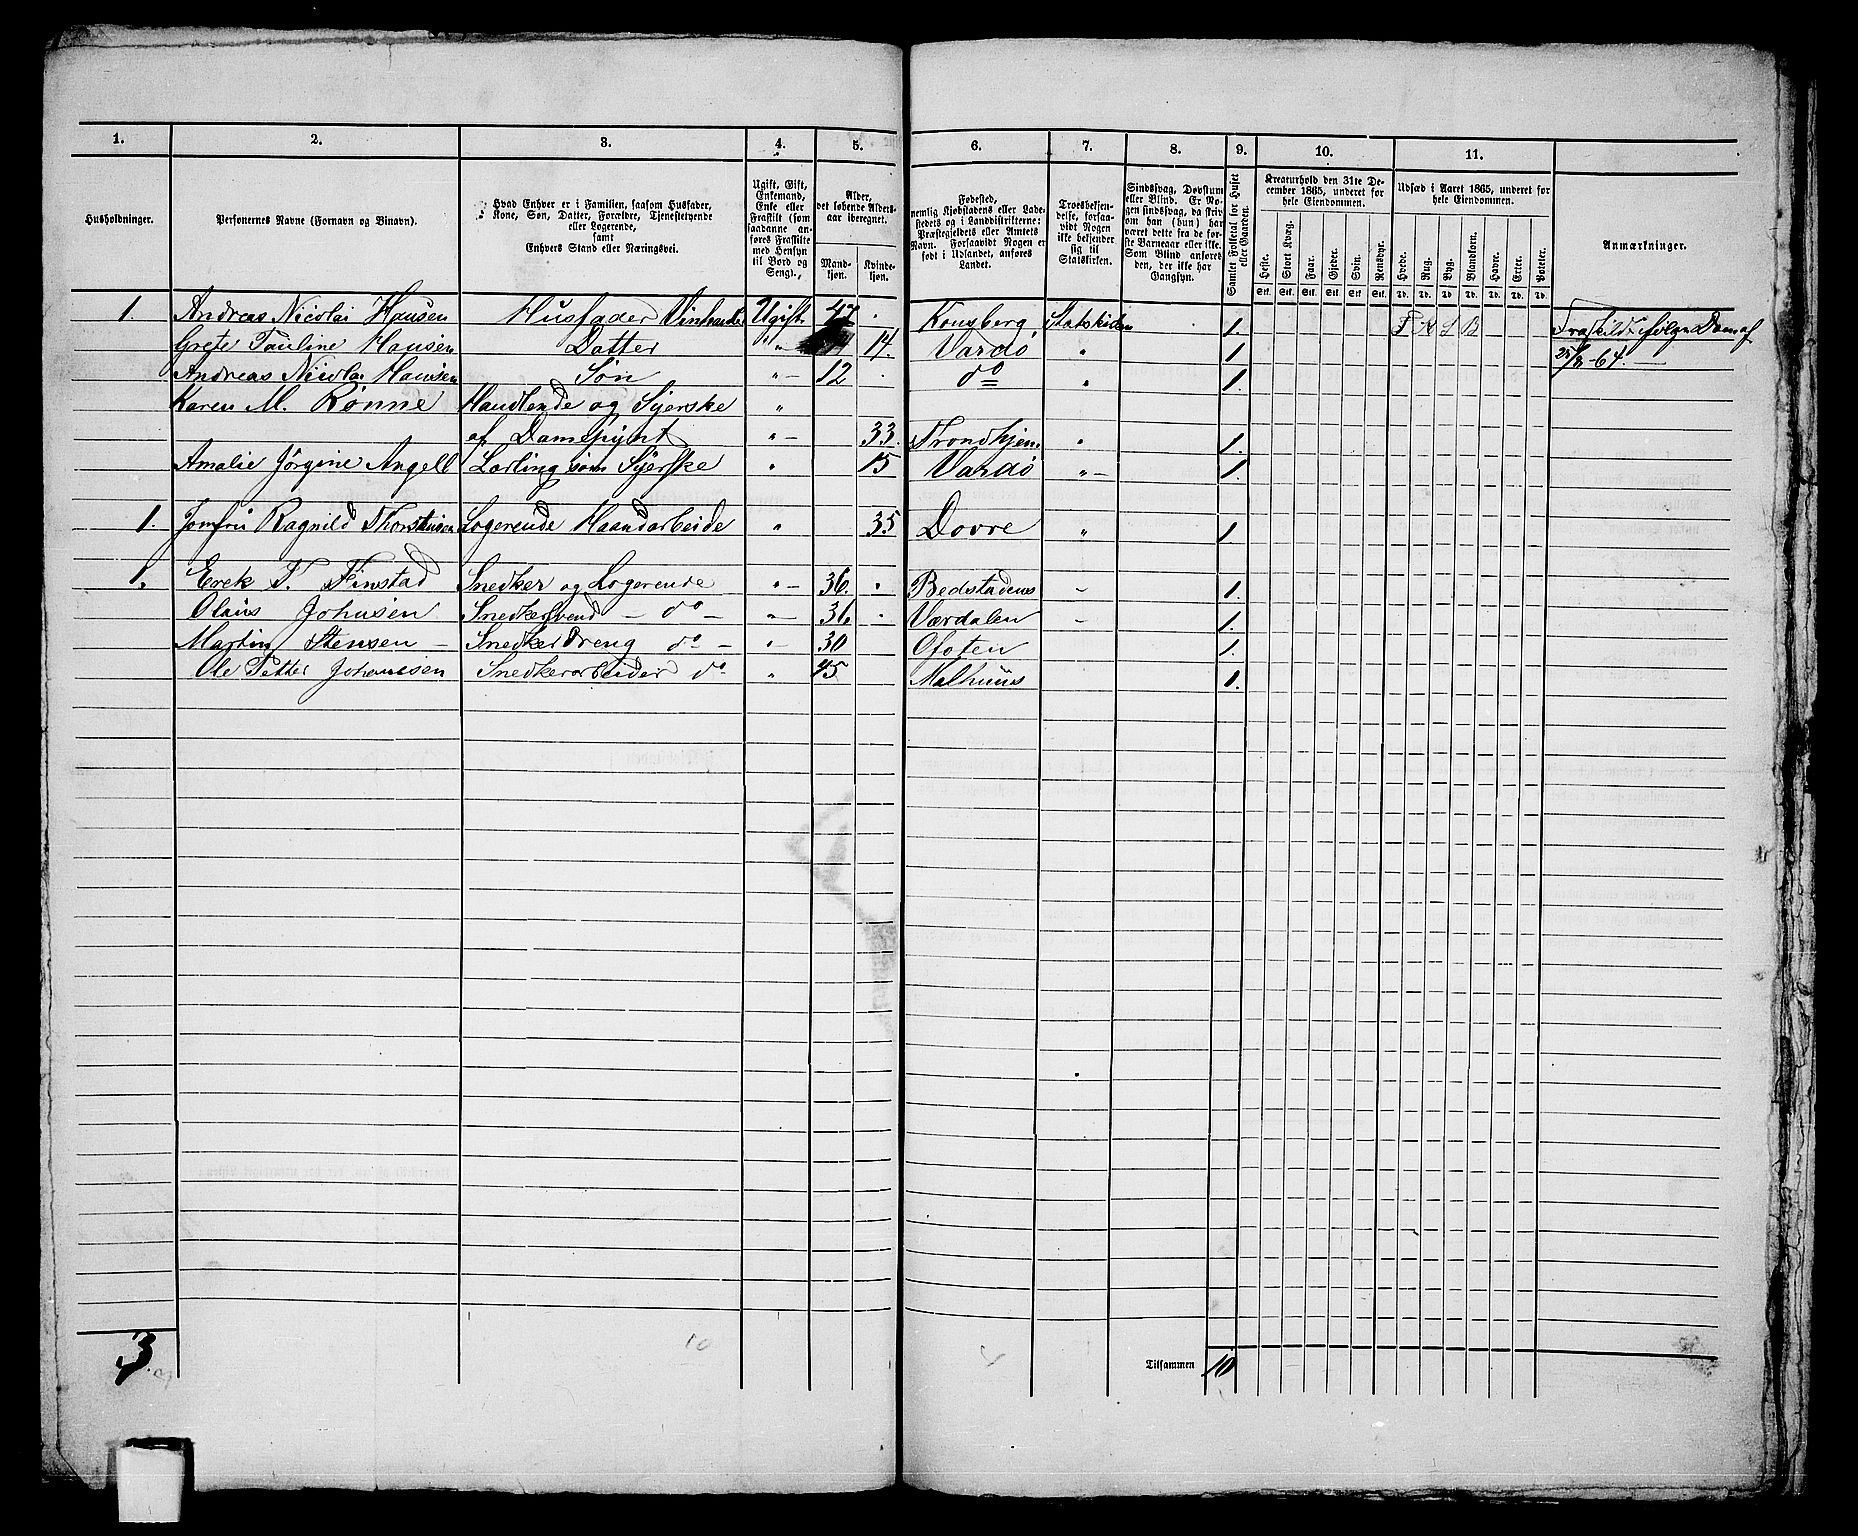 1. 2. 3. 4. 5. 6. 7. 8. 9. 10. 11.
Husholdninger.
Personernes Navne (Fornavn og Binavn).
Hvad Enhver er i Familien, saasom Husfader,
Kone, Søn, Datter, Forældre, Tjenestetyende
eller Logerende,
samt
Enhvers Stand eller Næringsvei.
Ugift, Gift,
Enkemand,
Enke eller
Fraskilt (som
saadanne an-
føres Fraskilte
med Hensyn
til Bord og
Seng).
Alder,
det løbende Alders-
aar iberegnet.
Mand-
kjøn.
Kvinde-
kjøn.
Fødested,
nemlig Kjøbstadens eller Lade-
stedets og i Landdistrikterne:
Præstegjeldets eller Amtets
Navn. Forsaavidt Nogen er
født i Udlandet, anføres
Landet.
Troesbekjen-
delse, forsaa-
vidt Nogen
ikke bekjender
sig til
Statskirken.
Sindssvag, Døvstum
eller Blind. Er No-
gen sindssvag, da skriv
om han (hun) har
været dette fra de før-
ste Barneaar eller ikke.
Som Blind anføres
den, der ikke har
Gangsyn.
Samlet Folketal for Huset
eller Gaarden.
Kreaturhold den 31te De-
cember 1865, underet for
hele Eiendommen.
Heste. Stort Kvæg. Faar. Gjeder. Svin. Rensdyr.
Stk. Stk. Stk. Stk. Stk. Stk.
Udsæd i Aaret 1865, underet for
hele Eiendommen.
Hvede. Rug. Byg. Blandkorn. Havre. Erter. Poteter.
Td. Td. Td. Td. Td. Td. Td.
Anmærkninger.
1. Andreas Nicolai Hansen Husfader Ugift 47 . Kongsberg, Statskirken 1.
Grete Pauline Hansen Datter " 14. Vardø " 1.
25/8-64.
Andreas Nicolai Hansen Søn " 12 . do " 1.
Karen M. Rønne Handlende og Syerske "
af Damepynt " 33. Trondhjem " 1.
Amalie Jørgine Angell Lærling som Syerske " 15 Vardø " 1.
1. Jomfru Ragnild Thorstensen Logerende Haandarbeide " 35 Dovre " 1.
1. Erek T. Finstad Snedker og Logerende " 36. . 1.
Olaus Johnsen Snedkersvend – do – " 36 . Værdalen 1.
Martin Stensen – Snedker Dreng do – " 30 Ofoten 1.
Ole Petter Johansen Snedkerarbeider do " 45 Malhuus 1.
3.
10
Tilsammen 10